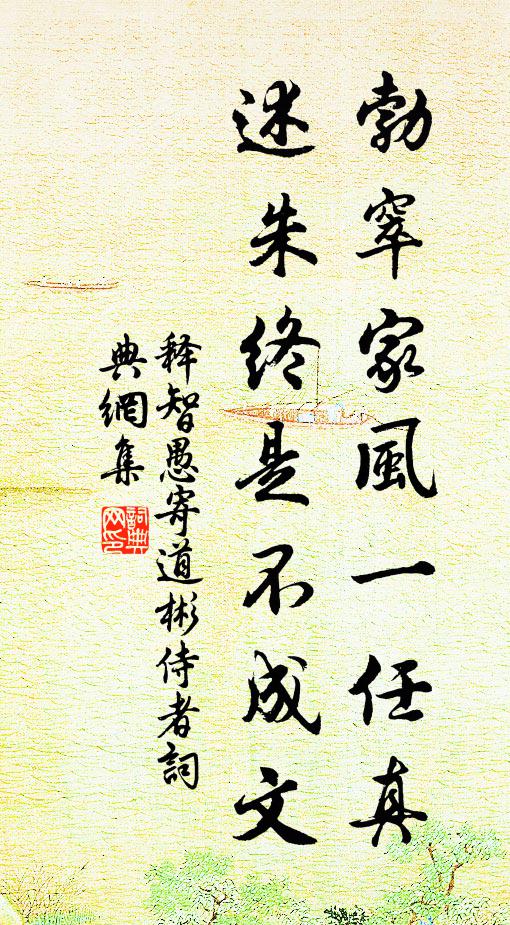 勃窣家風一任真
述朱終是不成文
释智愚寄道彬侍者詞
典網集
詞典
网印